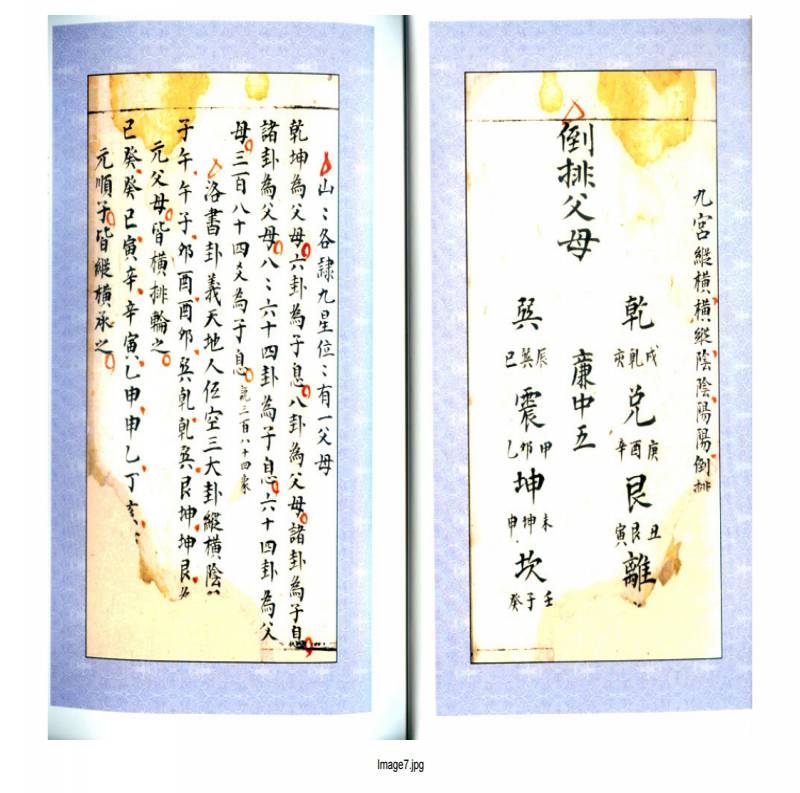 九宮縱橫橫縱陰陰陽陽倒排
乾
戌乾亥
兌
庚酉辛
艮
丑艮寅
離
倒排父母
廉中五
巽
辰巽巳
震
甲卯乙
坤
未坤申
坎
壬子癸
山：各隸九星位：有一父母
乾坤為父母六卦為子息八卦為父母諸卦為子息
諸卦為父母八：六十四卦為子息六十四卦為父
母三百八十四爻為子息
三百八十四
洛書卦義天地人伍空三大卦縱橫陰
子午午子卯酉酉卯巽乾乾巽艮坤坤艮
元父母皆橫排輪之
巳癸癸巳寅辛辛寅乙申申乙丁
元順子皆縱橫承之
Image7.jpg